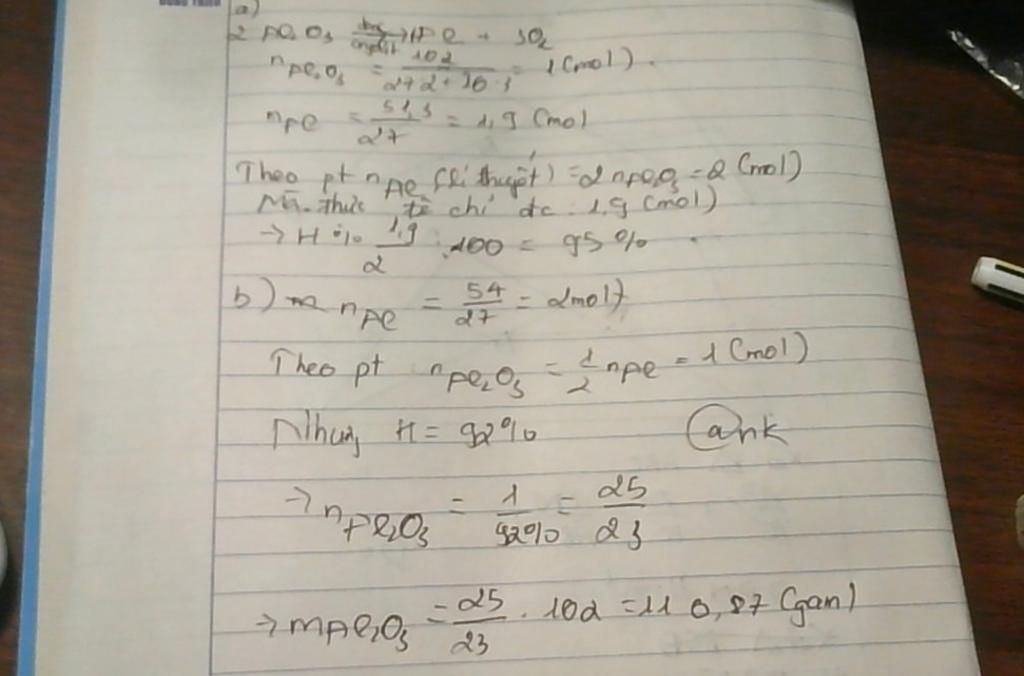 a)
2 Al₂O₃ → 4Al + 3O₂
nAl₂O₃ = 102/(27.2+16.3) = 1 (mol).
nAl = 51,3/27 = 1,9 (mol
Theo pt nAl (lí thuyết) = 2nAl₂O₃ = 2 (mol)
Mà thực tế chỉ đc : 1,9 (mol)
→ H% 1,9/2 .100 = 95%
b) nAl = 54/27 = 2mol)
Theo pt nAl₂O₃ = 1/2 nAl = 1 (mol)
Nhưng H = 92% @nk
→ nAl₂O₃ = 1/92% = 25/23
→ mAl₂O₃ = 25/23 . 102 = 110,87 (gam)